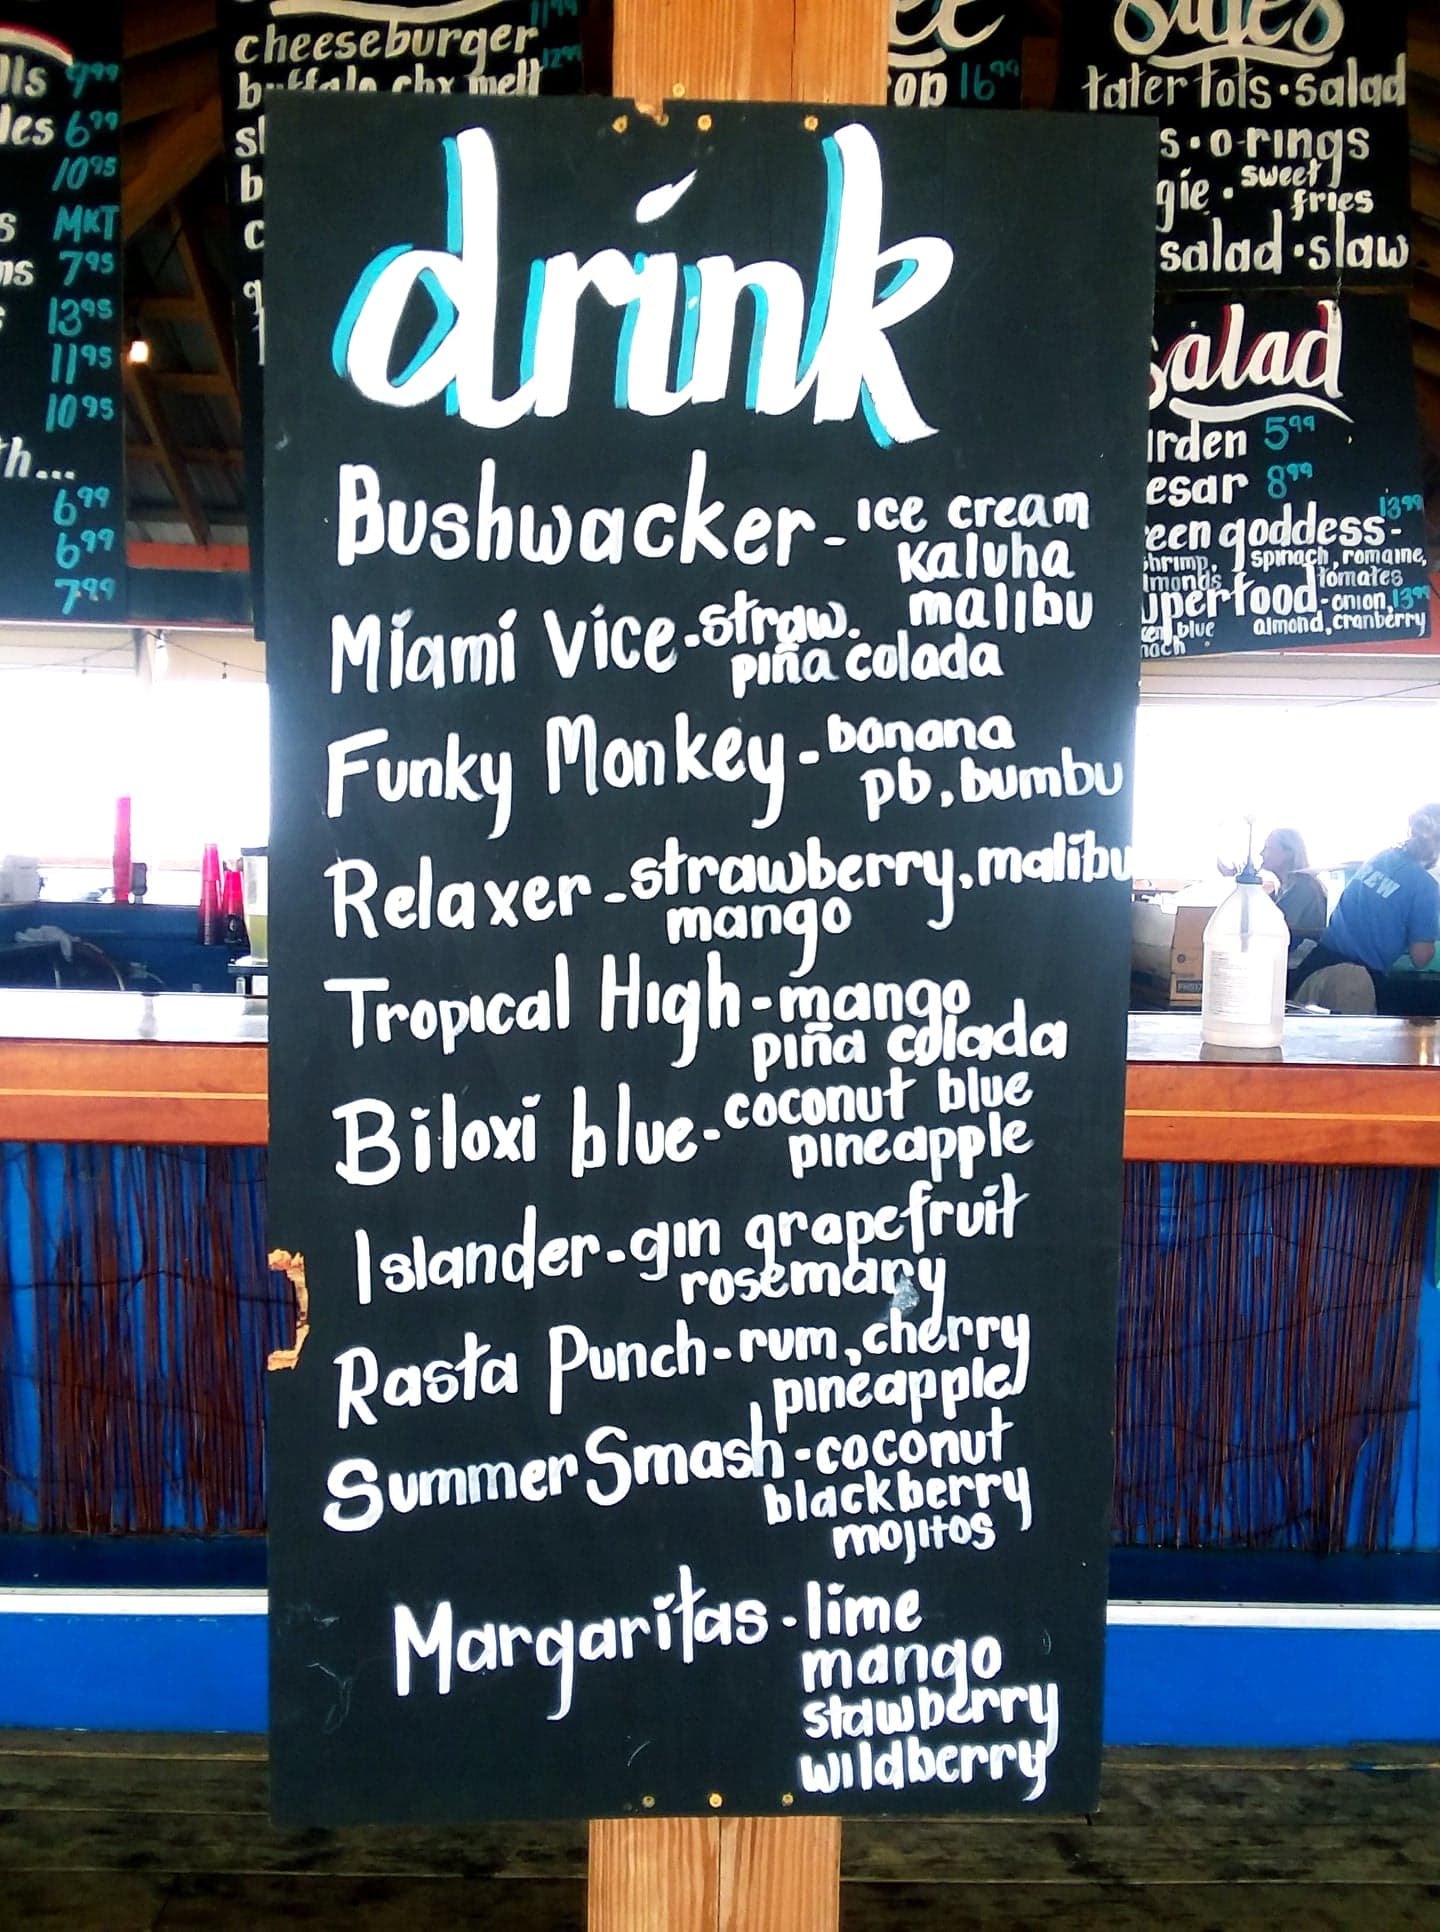 drink
Bushwacker - ice cream
Kaluha
malibu
Miami Vice - straw.
piña colada
Funky Monkey - banana
pb, bumbu
Relaxer - strawberry, malibu
mango
Tropical High - mango
piña colada
Biloxi blue - coconut blue
pineapple
Islander - gin grapefruit
rosemary
Rasta Punch - rum, cherry
pineapple
Summer Smash - coconut
blackberry
mojitos
Margaritas - lime
mango
stawberry
wildberry
9.99
6.99
10.95
MKT
7.95
13.95
11.95
10.95
6.99
6.99
7.99
11.99
cheeseburger 12.99
buffalo chx melt
16.99
Sides
tater tots • salad
o-rings
sweet
fries
salad • slaw
Salad
5.99
8.99
goddess - 13.99
spinach, romaine,
tomates
onion, 13.99
blue almond, cranberry